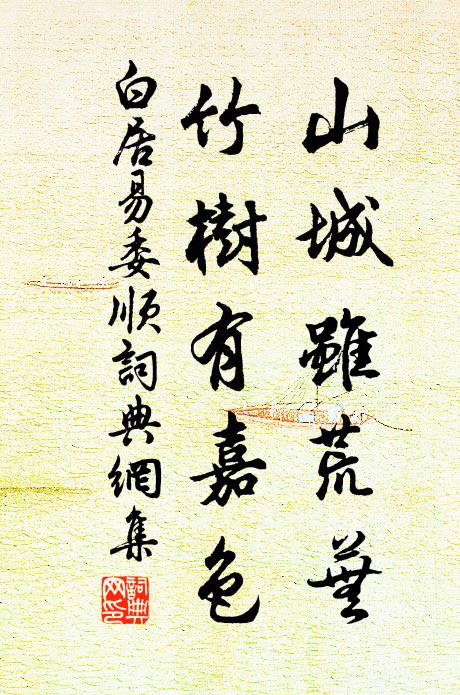 山城雖荒蕪
竹樹有嘉色
白居易委順詞典網集
詞典
网印